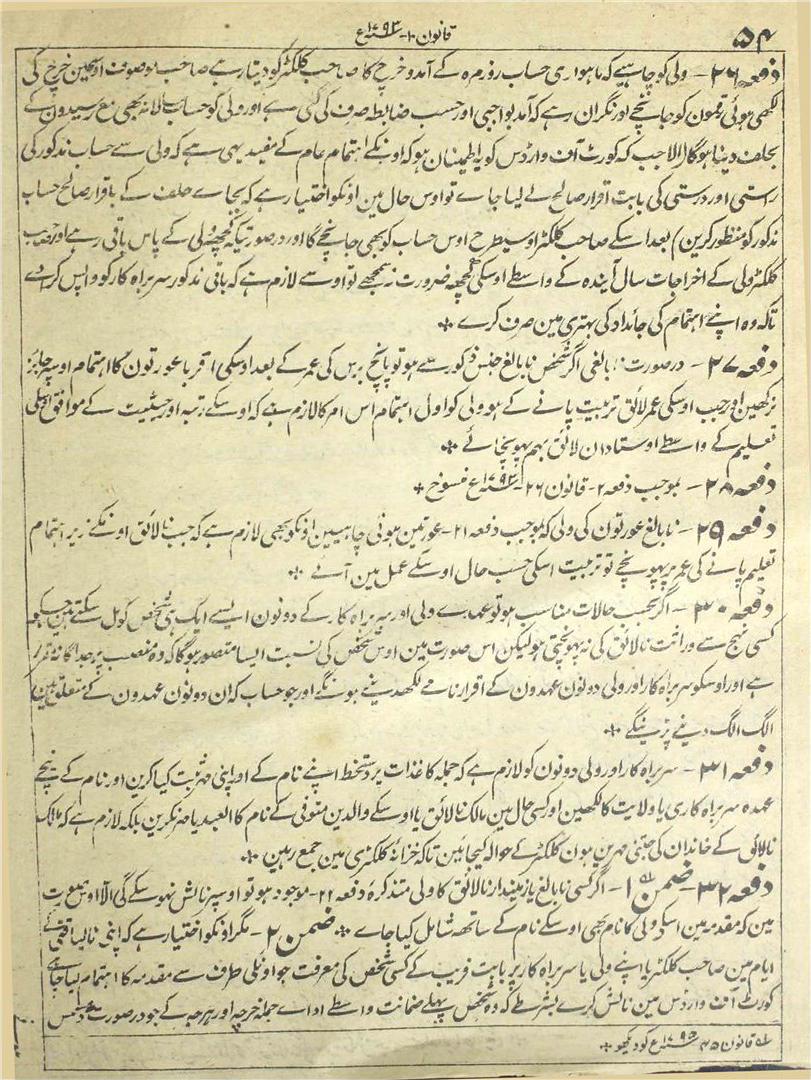 قانون ۱۰- ۱۷۹۳ سنہ ع
۵۴
دفعہ ۲۶- ولی کو چاہیے کہ ماہواری حساب روزمرہ کے آمد و خرچ کا صاحب کلکٹر کو دیتا رہے صاحب موصوف اوسمین خرچ کی
لکھی ہوئی رقمون کو جانچے اور نگران رہے کہ آمد بواجبی اور حسب ضابطہ صرف کی گئی ہے اور ولی کو حساب سالانہ بھی مع رسیدون کے
بحلف دینا ہوگا (الا جب کہ کورٹ آف وارڈس کو یہ اطمینان ہو کہ اونکے اہتمام عام کے مفید یہی ہے کہ ولی سے حساب مذکور کی
راستی اور درستی کی بابت اقرار صالح لے لیا جاے تو اوس حال مین اونکو اختیار ہے کہ بجاے حلف کے باقرار صالح حساب
مذکور کو منظور کرین) بعد اسکے صاحب کلکٹر اوسیطرح اوس حساب کو بھی جانچے گا اور درصورتیکہ کچھ ولی کے پاس باقی رہے اور صاحب
کلکٹر ولی کے اخراجات سال آیندہ کے واسطے اوسکی کچھ ضرورت نہ سمجھے تو اوسے لازم ہے کہ باقی مذکور سربراہ کار کو واپس کرے
تاکہ وہ اپنے اہتمام کی جائداد کی بہتری مین صرف کرے ٭
دفعہ ۲۷- درصورت نابالغی اگر شخص نابالغ جنس ذکور سے ہو تو پانچ برس کی عمر کے بعد اوسکی اقربا عورتون کا اہتمام اوسپر جائز
نرکھین اور جب اوسکی عمر لائق تربیت پانے کے ہو ولی کو اول اہتمام اس امر کا لازم ہے کہ اوسکے رتبہ اور حیثیت کے موافق اوسکی
تعلیم کے واسطے اوستادان لائق بہم پہونچائے ٭
دفعہ ۲۸- بموجب دفعہ ۲- قانون ۲۶- ۱۷۹۳ سنہ ع منسوخ ٭
دفعہ ۲۹- نابالغ عورتون کی ولی کہ بموجب دفعہ ۲۱- عورتین ہونی چاہیین اونکو بھی لازم ہے کہ جب نالائق اونکے زیر اہتمام
تعلیم پانے کی عمر پر پہونچے تو تربیت اسکی حسب حال اوسکے عمل مین آئے ٭
دفعہ ۳۰- اگر بحسب حالات مناسب ہو تو عہدے ولی اور سربراہ کار کے دونون ایسے ایک ہی شخص کو مل سکتے ہین جسکو
کسی نہج سے وراثت نالائق کی نہ پہونچتی ہو لیکن اس صورت مین اوس شخص کی نسبت ایسا متصور ہوگا کہ وہ منصب پر جداگانہ مقرر
ہے اور اوسکو سربراہ کار اور ولی دونون عہدون کے اقرارنامے لکھدینے ہونگے اور جو حساب کہ ان دونون عہدون کے متعلق ہین
الگ الگ دینے پڑینگے ٭
دفعہ ۳۱- سربراہ کار اور ولی دونون کو لازم ہے کہ جملہ کاغذات پر دستخط اپنے نام کے اور اپنی مہر ثبت کیا کرین اور نام کے نیچے
عہدہ سربراہ کاری یا ولایت کا لکھین اور کسی حال مین مالک نالائق یا اوسکے والدین متوفی کے نام کا العبد یا مہر نکرین بلکہ لازم ہے کہ مالک
نالائق کے خاندان کی جتنی مہرین ہون کلکٹر کے حوالہ کیجائین تاکہ خزانۂ کلکٹری مین جمع رہین ٭
دفعہ ۳۲- ضمن ۱- اگر کسی نابالغ یا زمیندار نالائق کا ولی متذکرۂ دفعہ ۲۲- موجود ہو تو اوسپر نالش نہوسکے گی الا اوس صورت
مین کہ مقدمہ مین اسکے ولی کا نام بھی اوسکے نام کے ساتھ شامل کیا جاے ٭ ضمن ۲- مگر اونکو اختیار ہے کہ اپنی نالیاقتی کے
ایام مین صاحب کلکٹر یا اپنے ولی یا سربراہ کار پر بابت فریب کے کسی شخص کی معرفت جو اونکی طرف سے مقدمہ کا اہتمام کیا چاہے
کورٹ آف وارڈس مین نالش کرے بشرطے کہ وہ شخص پہلے ضمانت واسطے اداے جملہ خرچہ اور ہرجہ کے جو درصورت
قانون ۱۷۹۵ سنہ ع کو دیکھو ٭